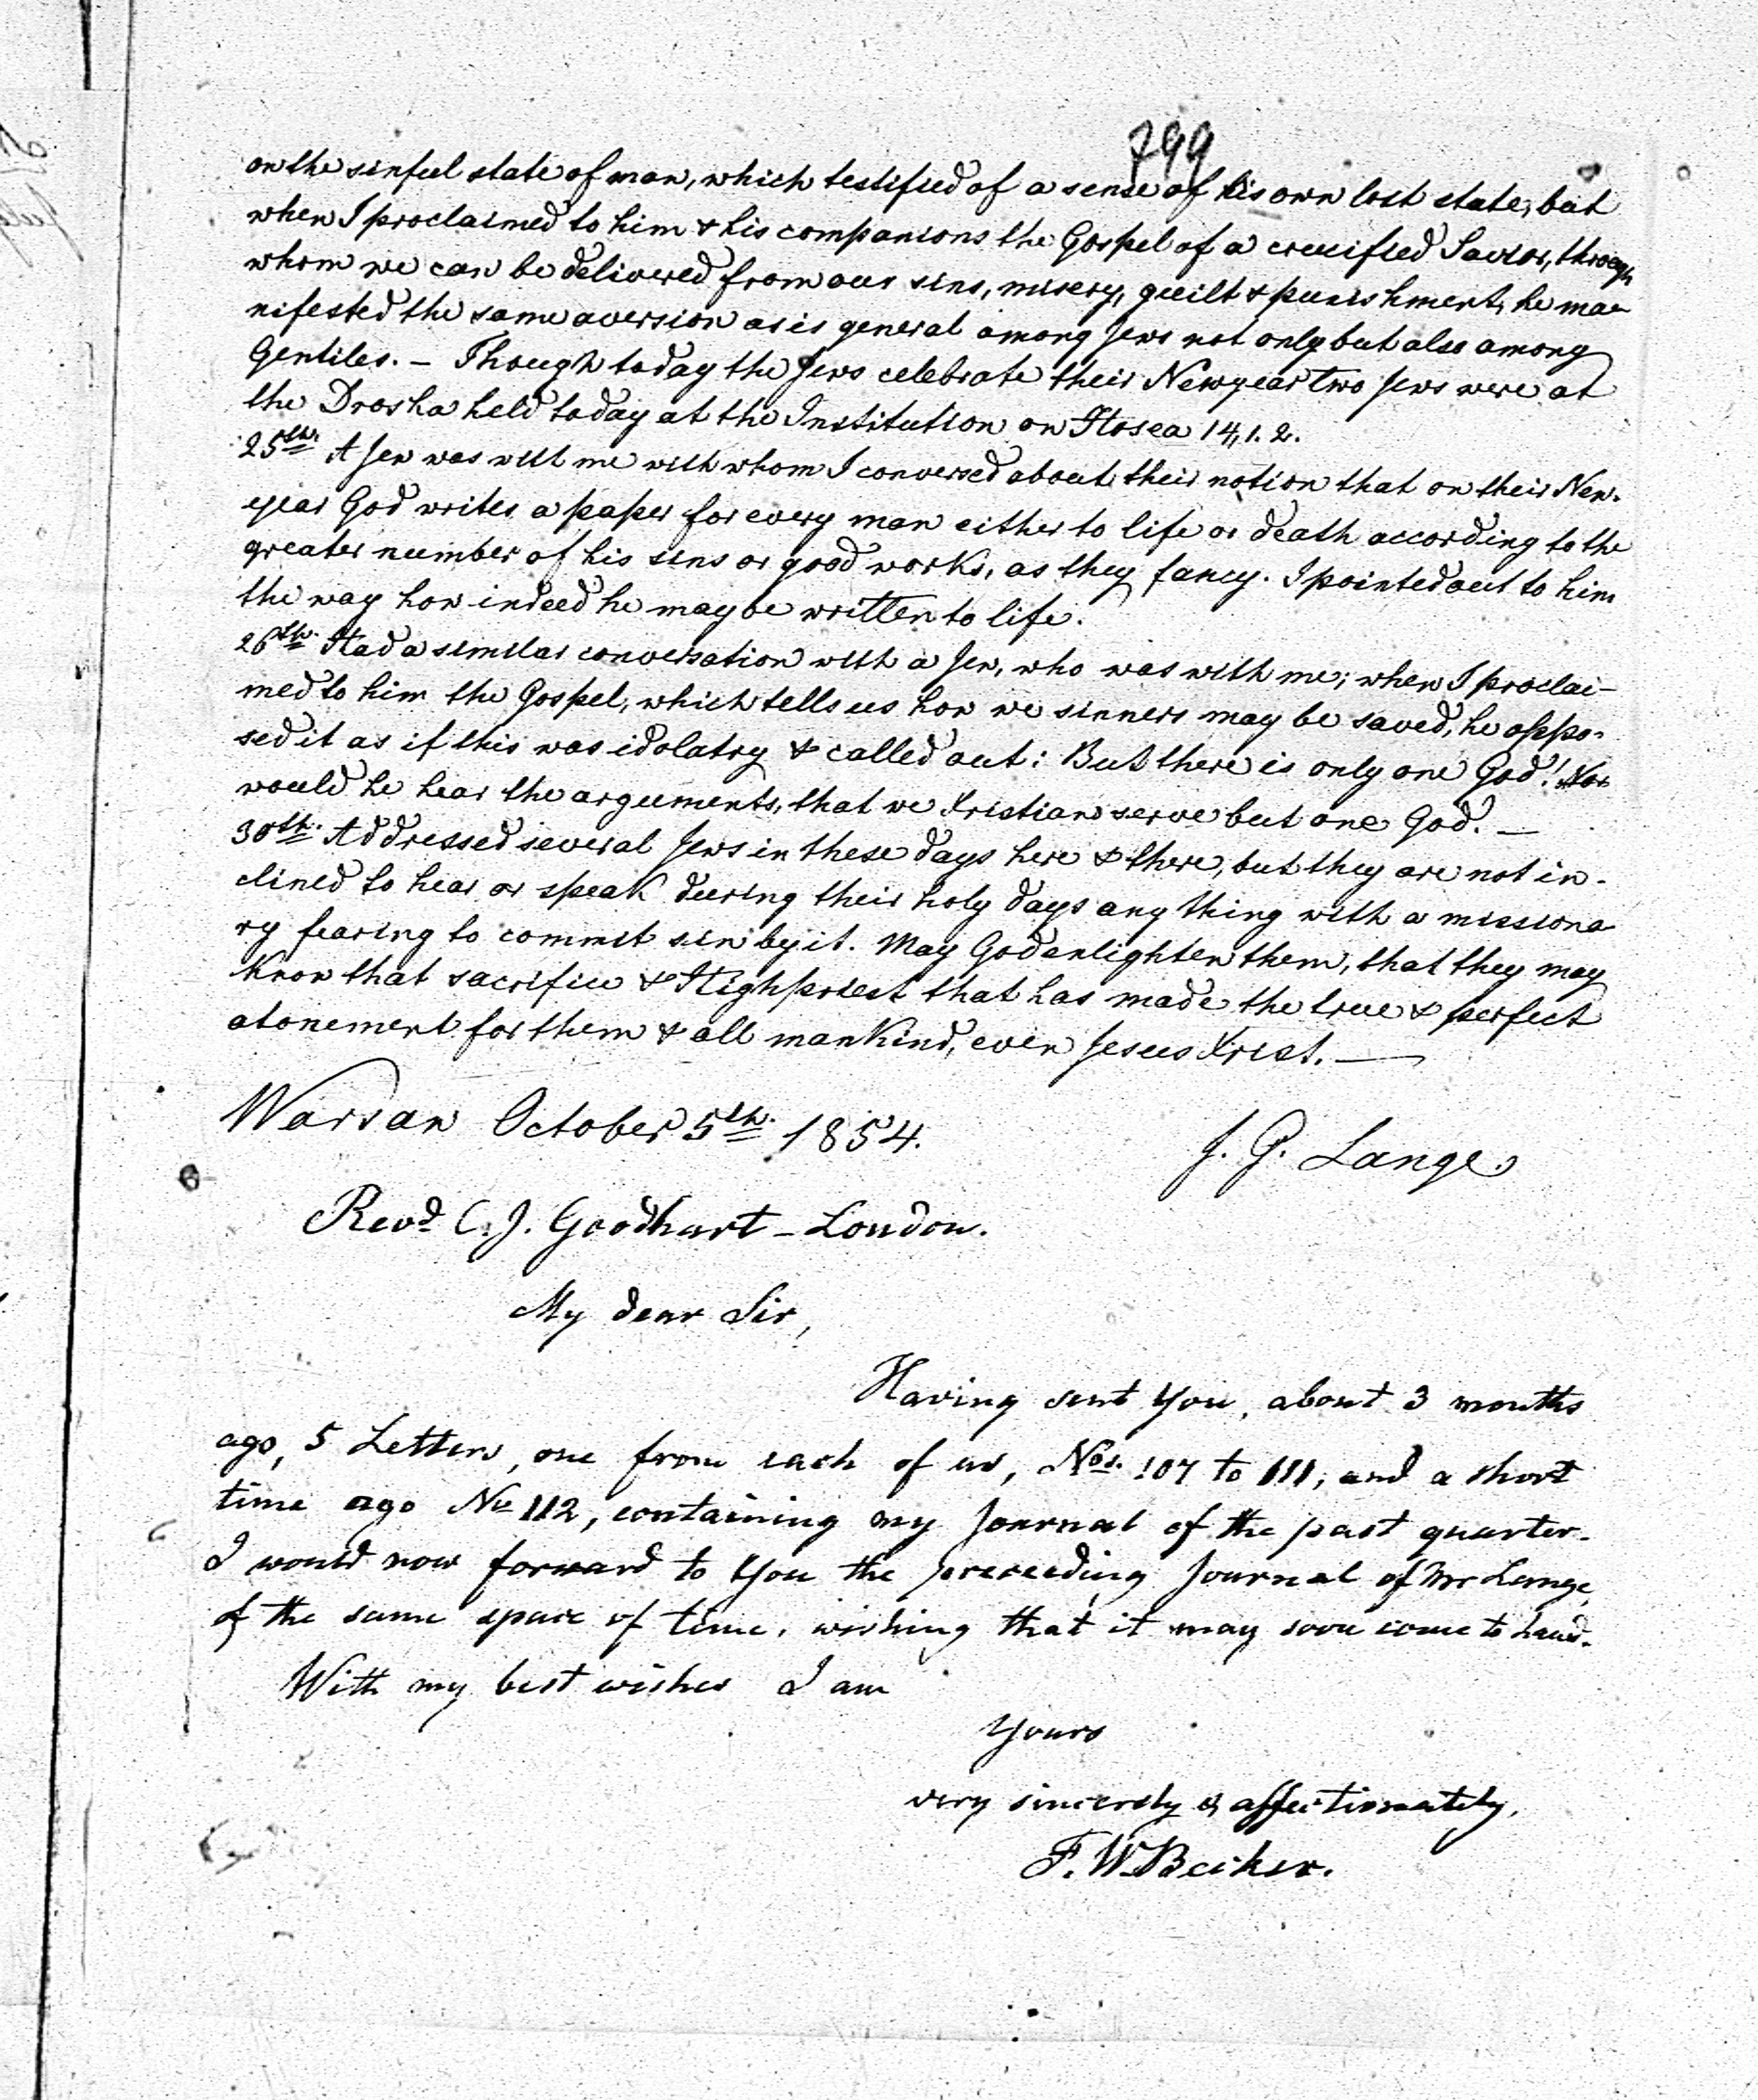 799
on the sinful state of man, which testified of a sense of his own lost state, but
when I proclaimed to him & his companions the Gospel of a crucified Savior, through
whom we can be delivered from our sins, misery, guilt & punishment, he ma-
nifested the same aversion as is general among Jews not only but also among
Gentiles. – Though today the Jews celebrate their Newyear two Jews were at
the Drosha held today at the Institution on Hosea 14, 1. 2.
25th. A Jew was with me with whom I conversed about their notion that on their New-
year God writes a paper for every man either to life or death according to the
greater number of his sins or good works, as they fancy. I pointed out to him
the way how indeed he may be written to life.
26th. Had a similar conversation with a Jew, who was with me; when I proclai-
med to him the Gospel, which tells us how we sinners may be saved, he oppo-
sed it as if this was idolatry & called out: But there is only one God! Nor
would he hear the arguements, that we Xristians serve but one God. —
30th. Addressed several Jews in these days here & there, but they are not in-
clined to hear or speak during their holy days any thing with a missiona-
ry fearing to commit sin by it. May God enlighten them, that they may
know that sacrifice & Highpriest that has made the true & perfect
atonement for them & all mankind, even Jesus Xrist. —
Warsaw October 5th. 1854.
J. G. Lange
Revd. C. J. Goodhart – London.
My dear Sir,
Having sent You, about 3 months
ago, 5 Letters, one from each of us, Nos. 107 to 111, and a short
time ago No 112, containing my Journal of the past quarter.
I would now forward to You the preceeding Journal of Mr Lange,
of the same space of time, wishing that it may soon come to hand.
With my best wishes I am
Yours
very sincerely & affectionately,
F. W. Becker.